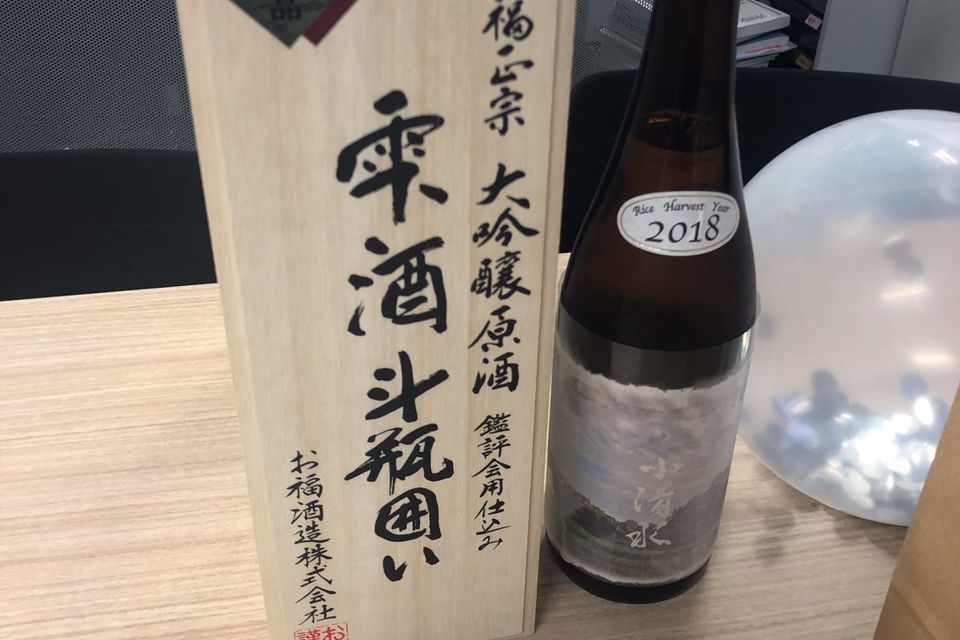 品
福正宗 大吟醸原酒 鑑評会用仕込み
雫酒斗瓶囲い
お福酒造株式会社
お
謹
Rice Harvest Year
2018
小清水